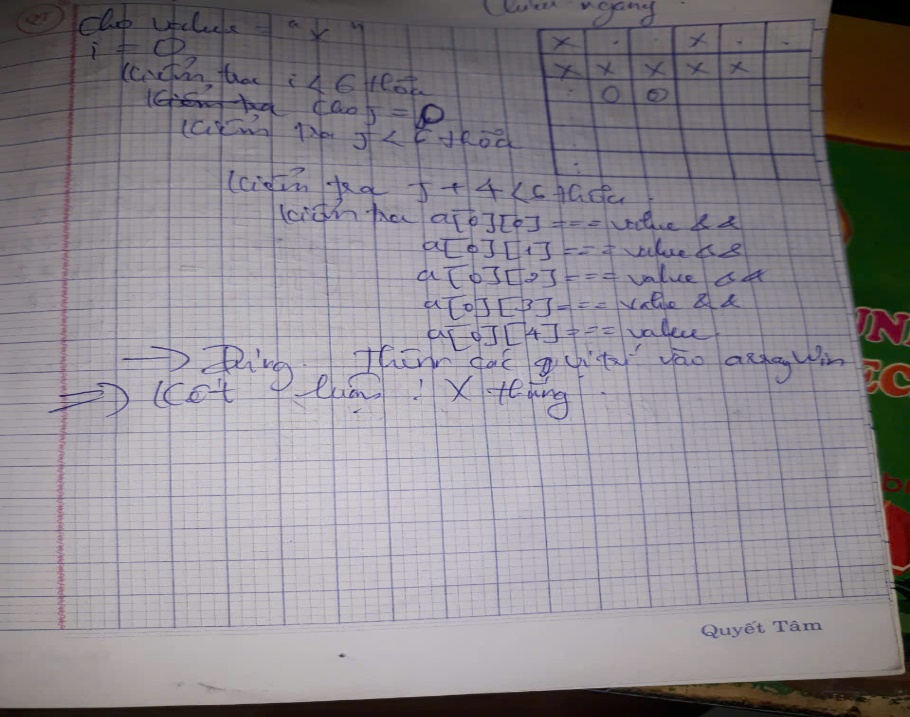 Chiều ngang
Cho value = "x"
i = 0
Kiểm tra i < 6 thoả
Kiểm tra cho j = 0
Kiểm tra j < 6 thoả
Kiểm tra j + 4 < 6 thoả
Kiểm tra a[0][0] === value &&
a[0][1] === value &&
a[0][2] === value &&
a[0][3] === value &&
a[0][4] === value
→ Đúng. Thêm các vị trí vào arrayWin
⇒ Kết luận : X thắng.
X . . X . .
X X X X X
. O O
.
:
UN
EC
Quyết Tâm